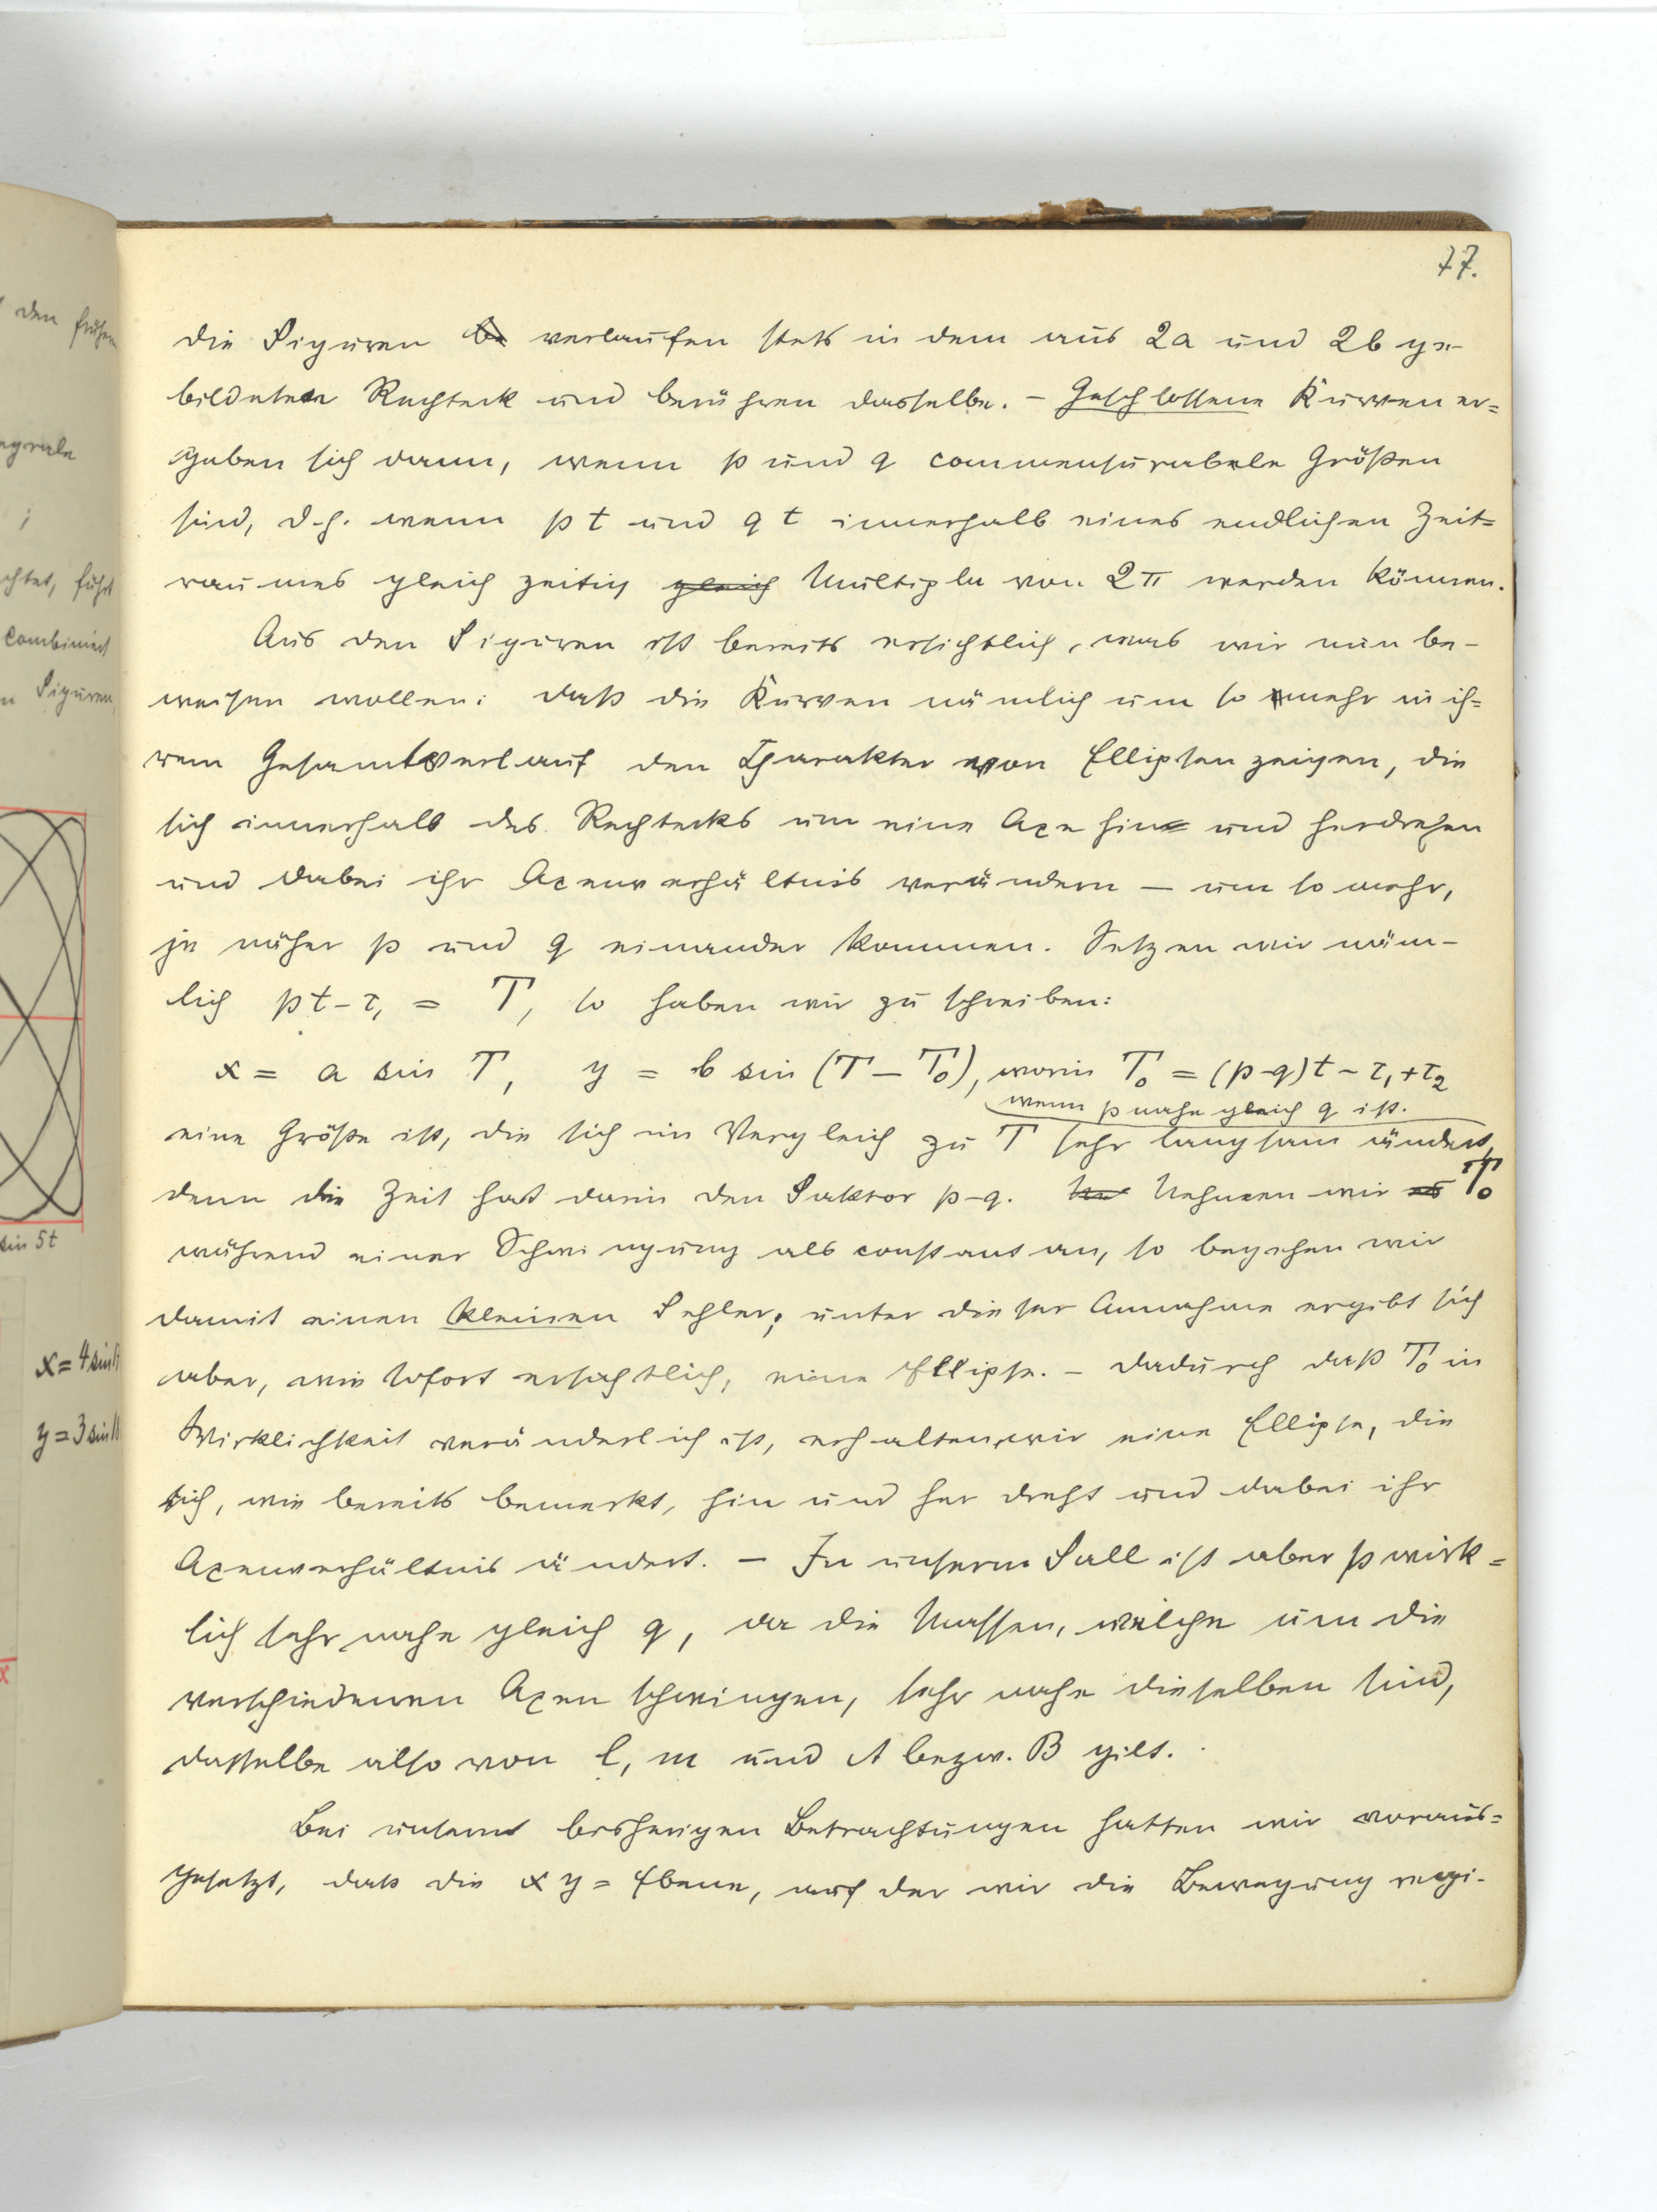 77.
die Figuren verlaufen stets in dem aus 2a und 2b ge-
bildeten Rechteck und berühren dasselbe. – Geschlossene Kurven er=
geben sich dann, wenn p und q commensurabele Größen
sind, d.h. wenn pt und qt innerhalb eines endlichen Zeit=
raumes gleichzeitig gleich Multipla von 2π werden können.
Aus den Figuren ist bereits ersichtlich, was wir nun be-
weisen wollen: daß die Kurven nämlich um so mehr in ih=
rem Gesamtverlauf den Charakter von Ellipsen zeigen, die
sich innerhalb des Rechtecks um eine Axe hin und herdrehen
und dabei ihr Axenverhältnis verändern – um so mehr,
je näher p und q einander kommen. Setzen wir näm-
lich pt – τ₁ = T, so haben wir zu schreiben:
x = a sin T, y = b sin (T – T₀), worin T₀ = (p–q)t – τ₁ + τ₂
wenn p nahe gleich q ist.
eine Größe ist, die sich im Vergleich zu T sehr langsam ändert,
denn die Zeit hat darin den Faktor p–q. Nehmen wir T₀
während einer Schwingung als constant an, so begehen wir
damit einen kleinen Fehler; unter dieser Annahme ergibt sich
aber, wie sofort ersichtlich, eine Ellipse. – Dadurch daß T₀ in
Wirklichkeit veränderlich ist, erhalten wir eine Ellipse, die
sich, wie bereits bemerkt, hin und her dreht und dabei ihr
Axenverhältnis ändert. – In unserm Fall ist aber p wirk=
lich sehr nahe gleich q, da die Massen, welche um die
verschiedenen Axen schwingen, sehr nahe dieselben sind,
dasselbe also von l, m und A bezw. B gilt.
Bei unsern bisherigen Betrachtungen hatten wir voraus=
gesetzt, daß die xy = Ebene, auf der wir die Bewegung regi-
den früher
egrale
;
chtet, führt
combiniert
n Figuren,
sin 5t
x = 4 sin
y = 3 sin
x